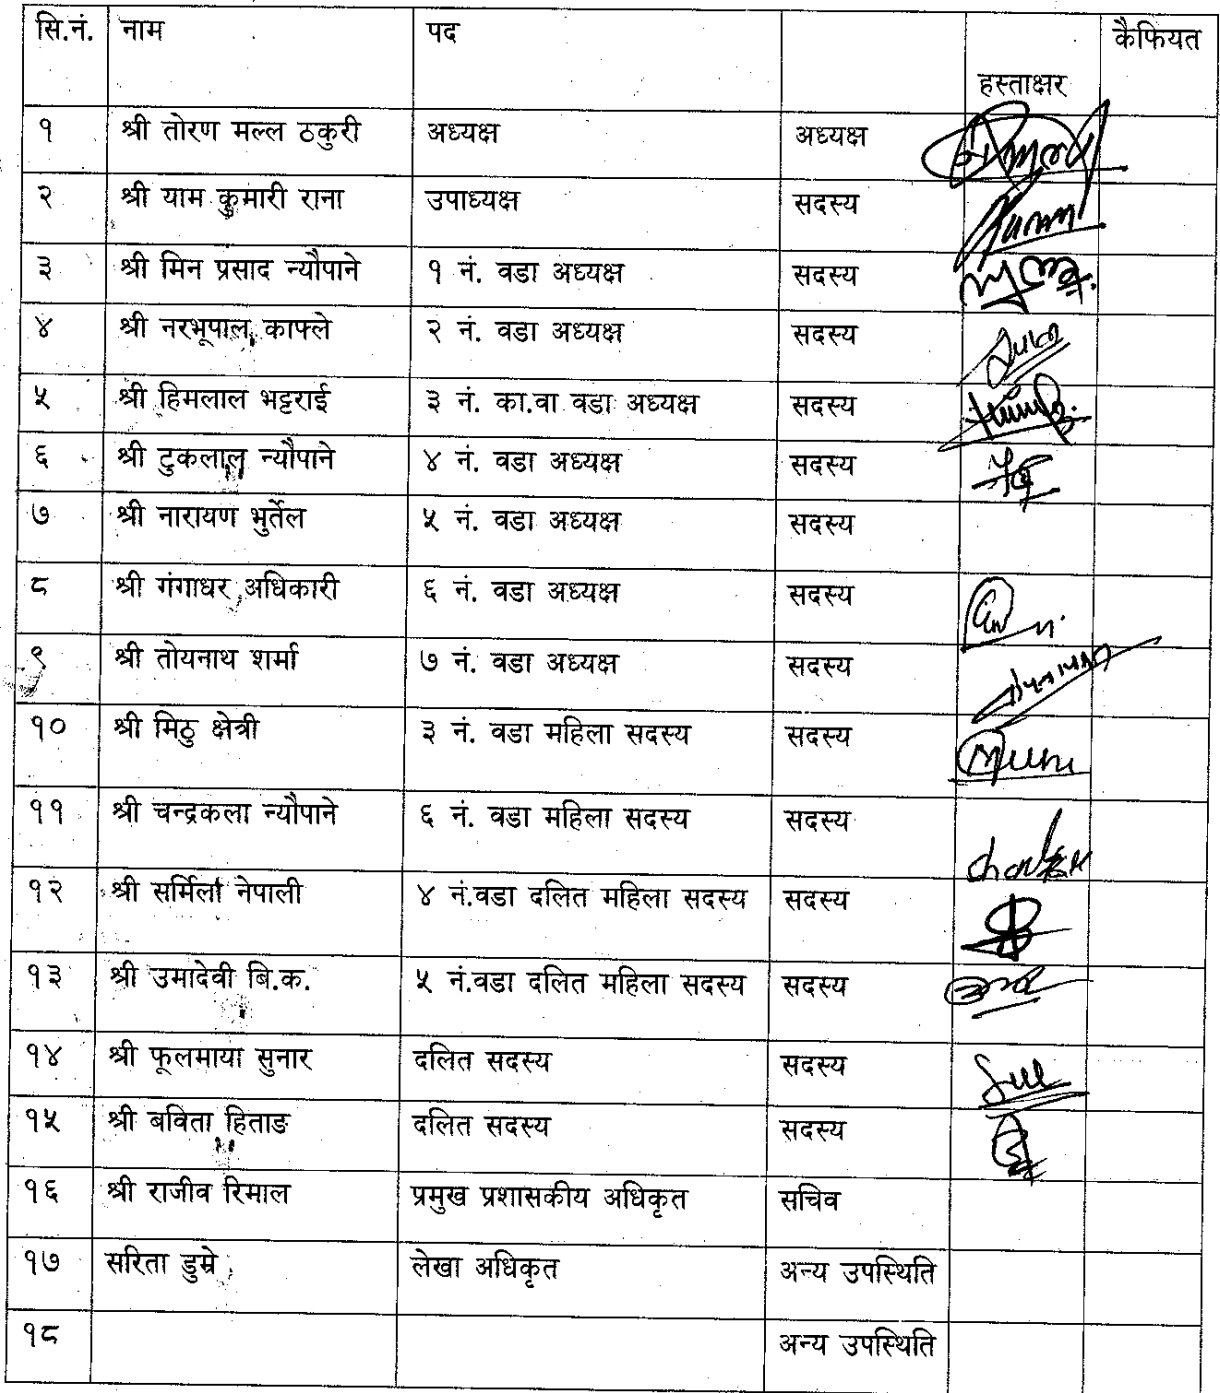 सि.नं. नाम पद हस्ताक्षर कैफियत
१ श्री तोरण मल्ल ठकुरी अध्यक्ष अध्यक्ष
२ श्री याम कुमारी राना उपाध्यक्ष सदस्य
३ श्री मिन प्रसाद न्यौपाने १ नं. वडा अध्यक्ष सदस्य
४ श्री नरभूपाल काफ्ले २ नं. वडा अध्यक्ष सदस्य
५ श्री हिमलाल भट्टराई ३ नं. का.वा वडा अध्यक्ष सदस्य
६ श्री टुकलाल न्यौपाने ४ नं. वडा अध्यक्ष सदस्य
७ श्री नारायण भुर्तेल ५ नं. वडा अध्यक्ष सदस्य
८ श्री गंगाधर अधिकारी ६ नं. वडा अध्यक्ष सदस्य
९ श्री तोयनाथ शर्मा ७ नं. वडा अध्यक्ष सदस्य
१० श्री मिठु क्षेत्री ३ नं. वडा महिला सदस्य सदस्य
११ श्री चन्द्रकला न्यौपाने ६ नं. वडा महिला सदस्य सदस्य
१२ श्री सर्मिला नेपाली ४ नं.वडा दलित महिला सदस्य सदस्य
१३ श्री उमादेवी बि.क. ५ नं.वडा दलित महिला सदस्य सदस्य
१४ श्री फूलमाया सुनार दलित सदस्य सदस्य
१५ श्री बविता हिताङ दलित सदस्य सदस्य
१६ श्री राजीव रिमाल प्रमुख प्रशासकीय अधिकृत सचिव
१७ सरिता डुम्रे लेखा अधिकृत अन्य उपस्थिति
१८ अन्य उपस्थिति